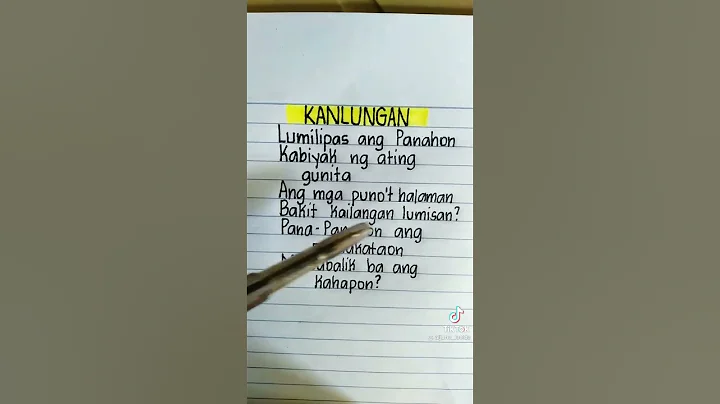 KANLUNGAN
Lumilipas ang Panahon
Kabiyak ng ating
gunita
Ang mga puno't halaman
Bakit kailangan lumisan?
Pana-Panahon ang
ba ang
kahapon?
TikTok